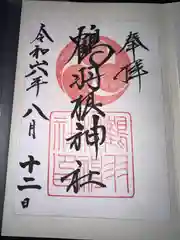 奉拝
鶴羽根神社
令和六年八月十二日